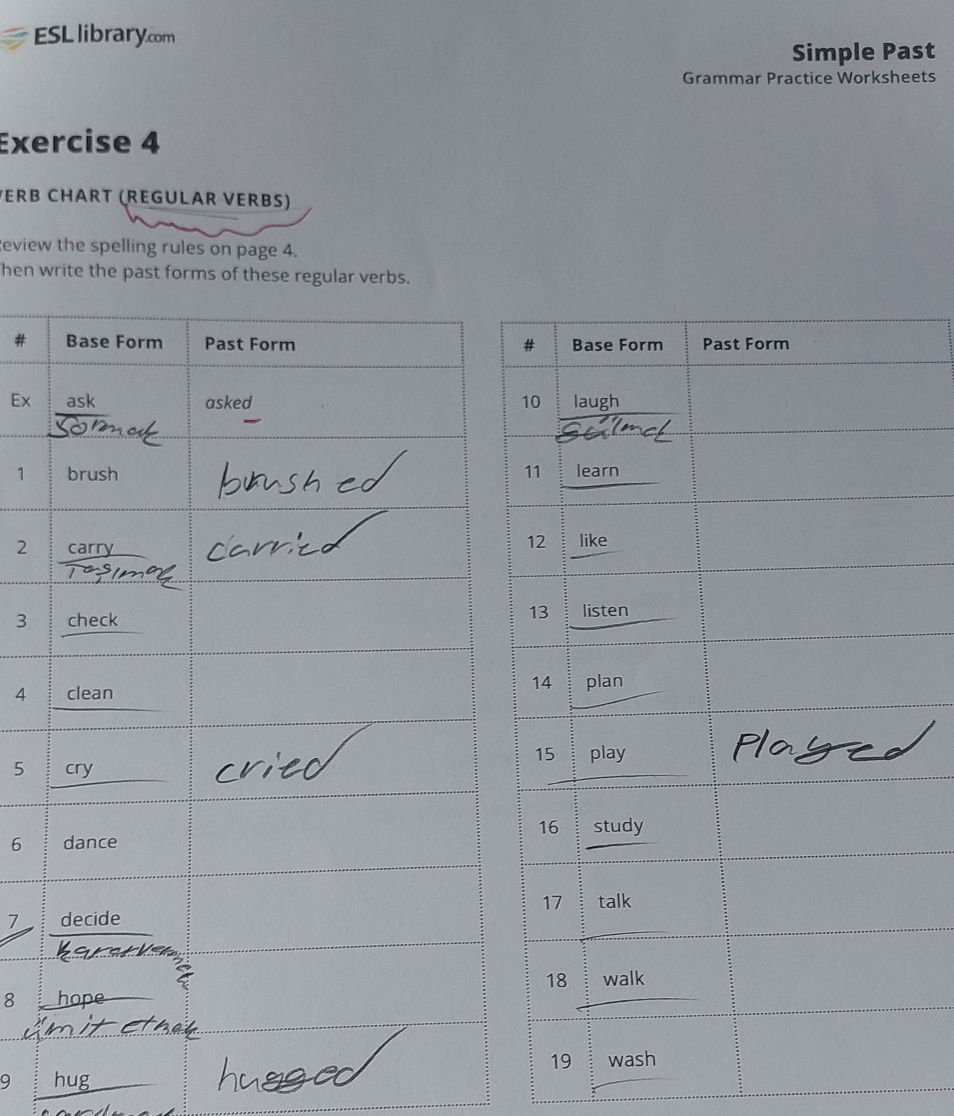 ESL library.com
Simple Past
Grammar Practice Worksheets
Exercise 4
VERB CHART (REGULAR VERBS)
Review the spelling rules on page 4.
Then write the past forms of these regular verbs.
# Base Form Past Form
Ex ask asked
Sormak
1 brush brushed
2 carry carried
Taşımak
3 check
4 clean
5 cry cried
6 dance
7 decide
Kararvermek
8 hope
ümit etmek
9 hug hugged
# Base Form Past Form
10 laugh
Gülmek
11 learn
12 like
13 listen
14 plan
15 play Played
16 study
17 talk
18 walk
19 wash